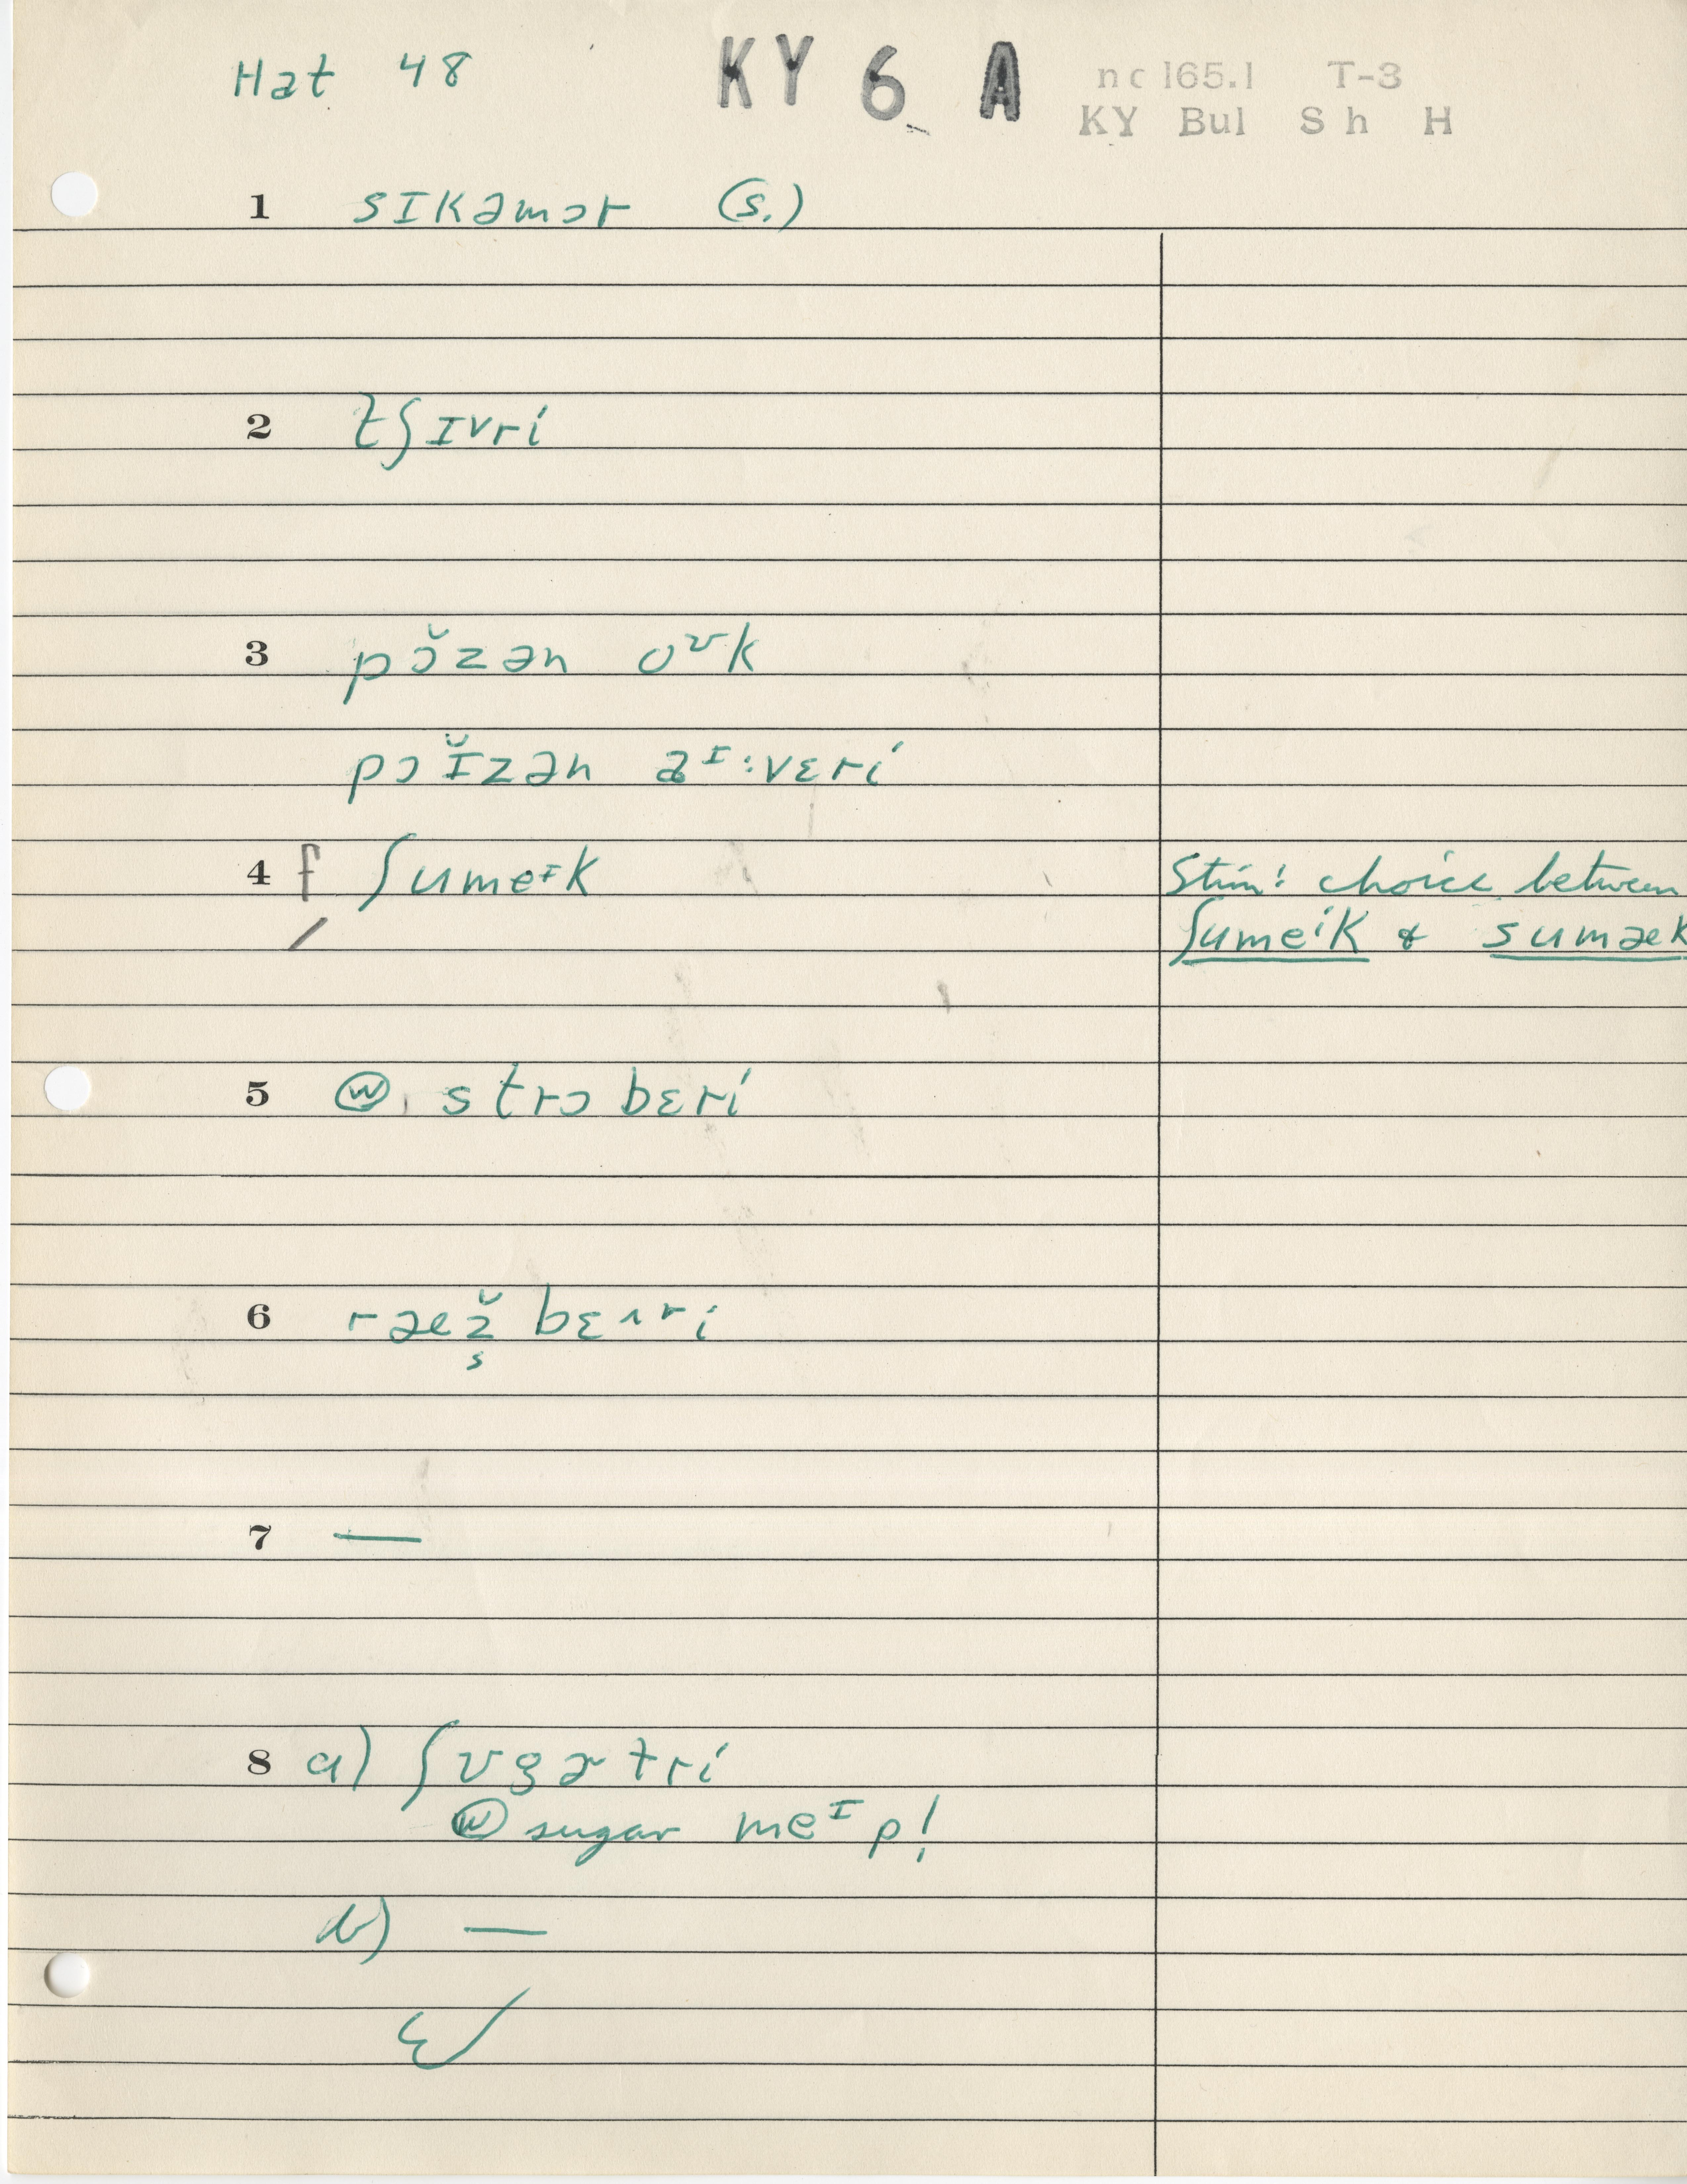 Hat 48 KY 6 A nc 165.1 T-3
KY Bul Sh H
1 sɪkəmɔr (s.)
2 tʃɪvri
3 pɔ̆zən oᶷk
pɔɪ̆zən aᶦːvɛri
4 f ʃumeᶦk Stim: choice between
/ ʃumeik & sumæk
5 ⓦ, strɔbɛri
6 ræz̆bɛʌri
s
7 —
8 a) ʃʊgɚtri
ⓦ sugar meᶦp!
b) —